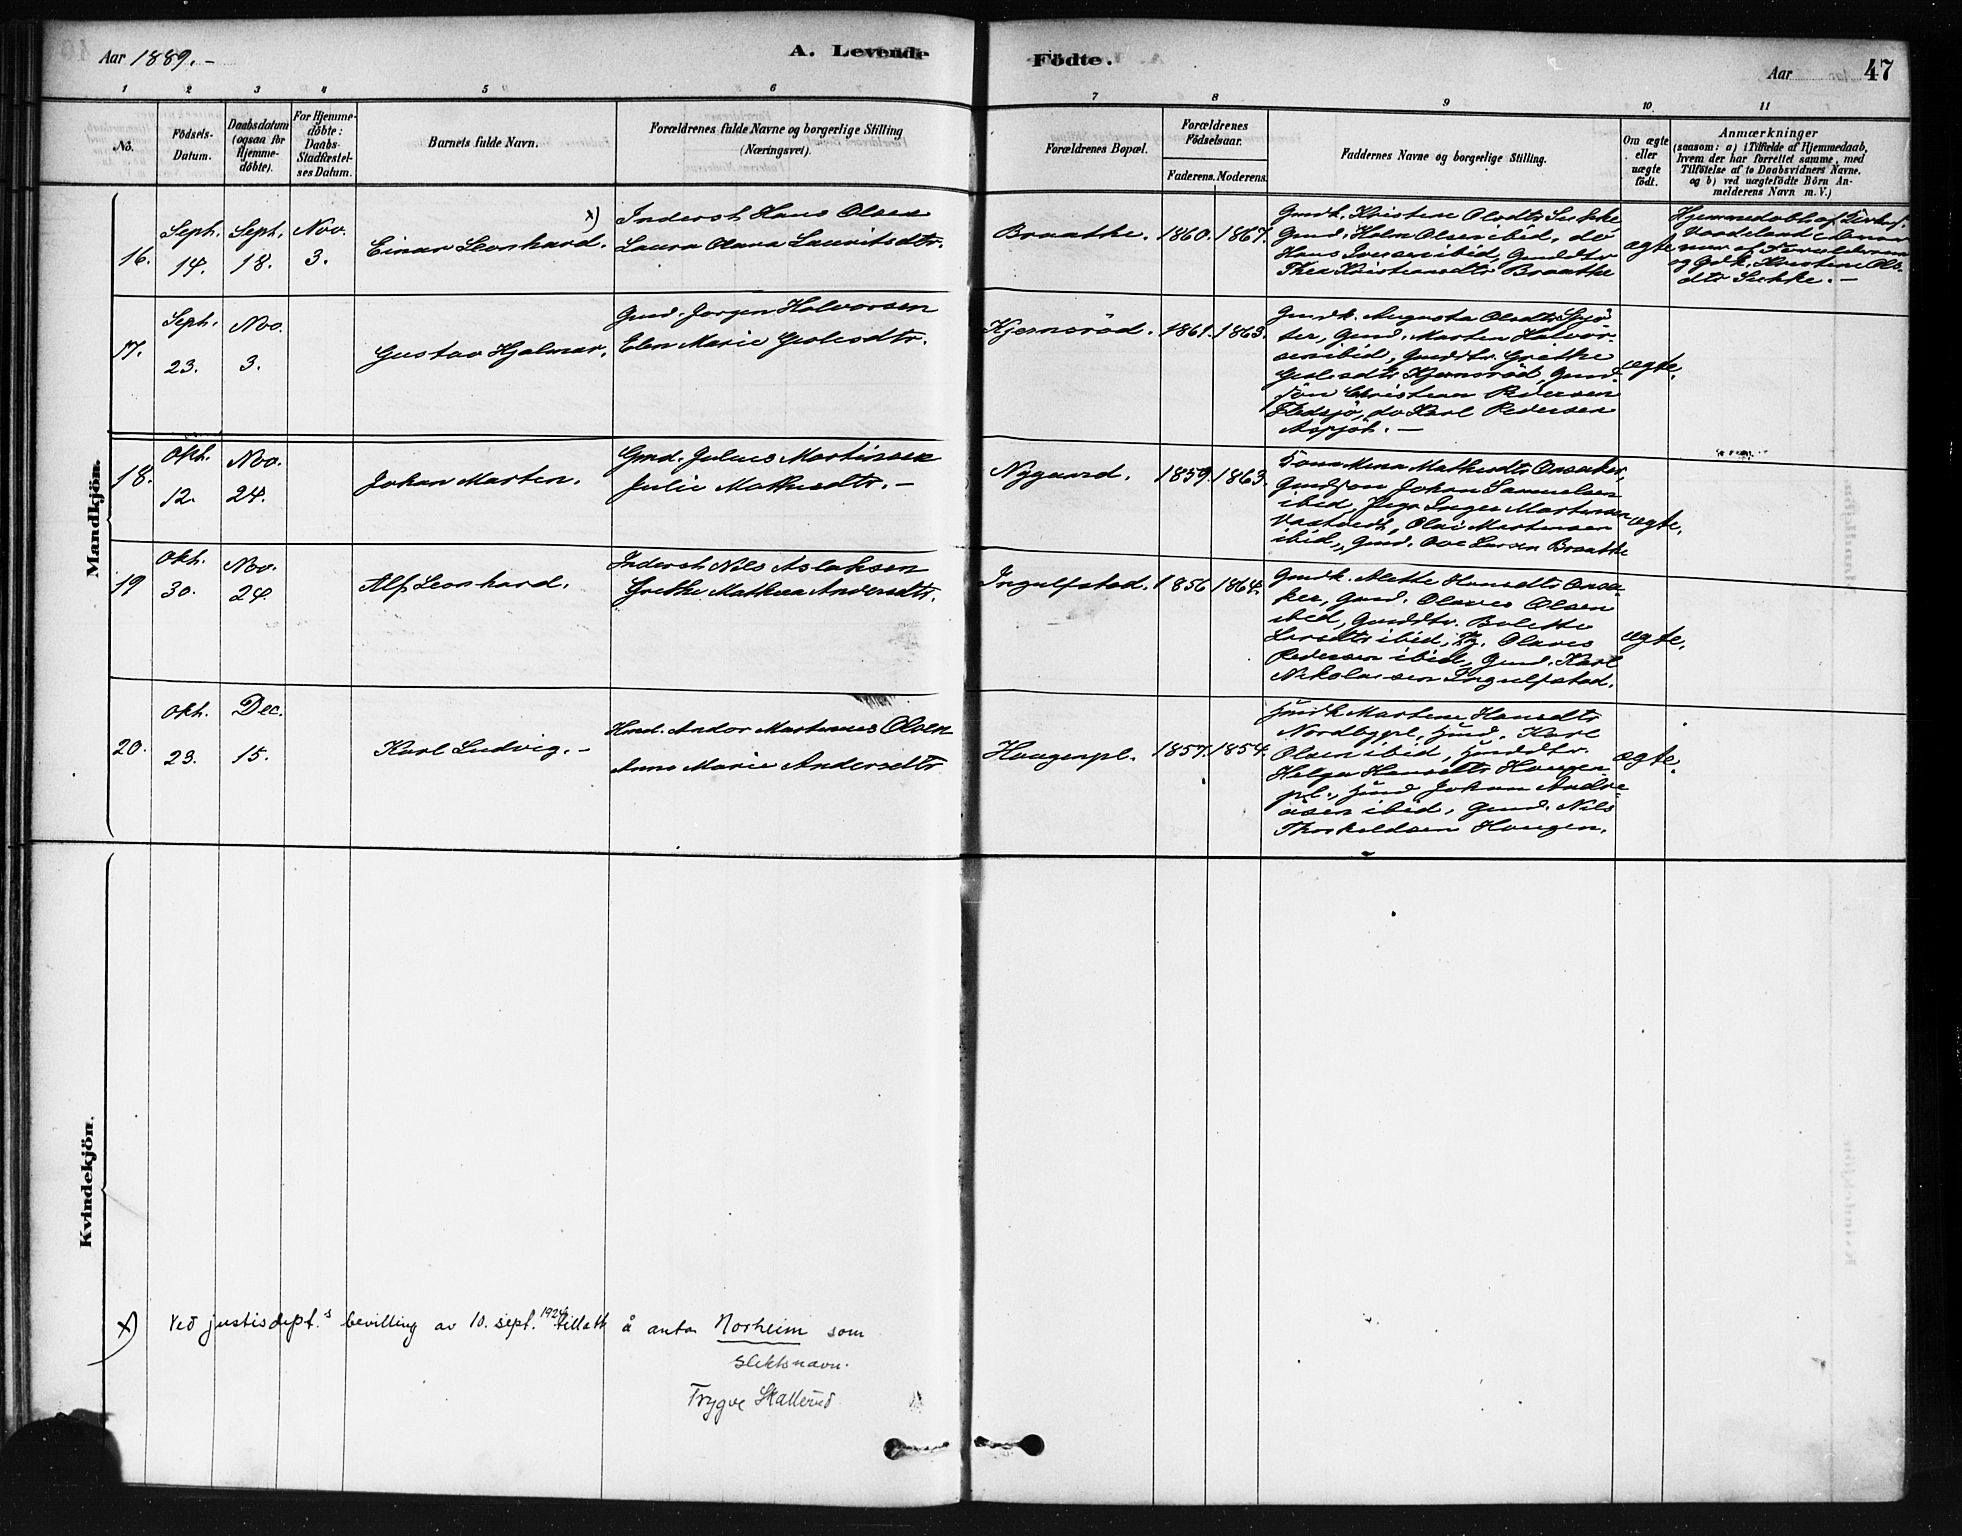 Aar 1889.-
A. Levende Födte.
Aar 47
1 2 3 4 5 6 7 8 9 10 11
No.
Födsels-
Datum.
Daabsdatum
(ogsaa for
Hjemme-
döbte).
For Hjemme-
döbte:
Daabs-
Stadfæstel-
ses Datum.
Barnets fulde Navn.
Forældrenes fulde Navne og borgerlige Stilling
(Næringsvei).
Forældrenes Bopæl.
Forældrenes
Födselsaar.
Faderens. Moderens.
Faddernes Navne og borgerlige Stilling.
Om ægte
eller
uægte
født.
Anmærkninger
(saasom: a) i Tilfælde af Hjemmedaab,
hvem der har forrettet samme, med
Tilföielse af to Daabsvidners Navne,
og b) ved uægtefödte Börn An-
melderens Navn m. V.)
Mandkjön.
16.
Seph.
14.
Seph.
18.
Nov.
3.
x)
Einar Leonhard.
Inderst Hans Olsen
Laura Olava Lauritsdtr.
Braathe.
1860. 1867.
Gmdk. Kristine Olsdtr Sukke
Gmd. Holm Olsen ibid, do
Hans Iversen ibid, Gmddtr
Thea Kristiansdtr Braathe
ægte
Hjemmedöbt af
og Gmdk. Kristine Ols-
dtr Sukke. -
17.
Seph.
23.
Nov.
3.
Gustav Hjalmar.
Gmd. Jorgen Halvorsen
Elen Marie
Kjernsröd.
1861. 1863.
Gmdk. Augusta Olsdtr
Gmd. Morten Halvor-
sen ibid, Gmddtr. Grethe
Kjernsröd, Gmd.
sön Christian Pedersen
do Karl Pedersen
ægte.
18.
Okt.
12.
Nov.
24.
Johan Marten.
Gmd. Julius Martinsen
Julie Mathisdtr. -
Nygaard.
1859. 1863.
Mathisdtr Onsaker,
Gmdsön Johan Samuelsen
ibid, Pige Inger Martinsen
Olai Martinsen
ibid, Gmd. Ove Larsen Braathe
ægte.
19
Okt.
30.
Nov.
24.
Alf Leonhard.
Inderst Nils Aslaksen
Grethe Mathea Andersdtr.
Ingulfstad.
1856 1864.
Gmdk. Alette Hansdtr Onsa-
ker, Gmd. Olaves Olsen
ibid, Gmddtr. Bolette
Larsdtr ibid, Olaves
Pedersen ibid, Gmd. Karl
Nikolaisen Ingulfstad.
ægte.
20.
Okt.
23.
Dec.
15.
Karl Ludvig. -
Hmd. Andor Martinius Olsen
Anne Marie Andersdtr
Haugenpl.
1857. 1854.
Hmdk Martine Hansdtr
Nordbypl, Hmd. Karl
Olsen ibid, Hmddtr.
Helga Hansdtr Haugen
pl., Hmd Johan Andre-
asen ibid, Gmd. Nils
Thorkeldsen Haugen.
ægte.
Kvindekjön.
x) Ved justisdept.s bevilling av 10. sept. 1924 tillatt å anta Norheim som
slektsnavn.
Trygve Skallerud